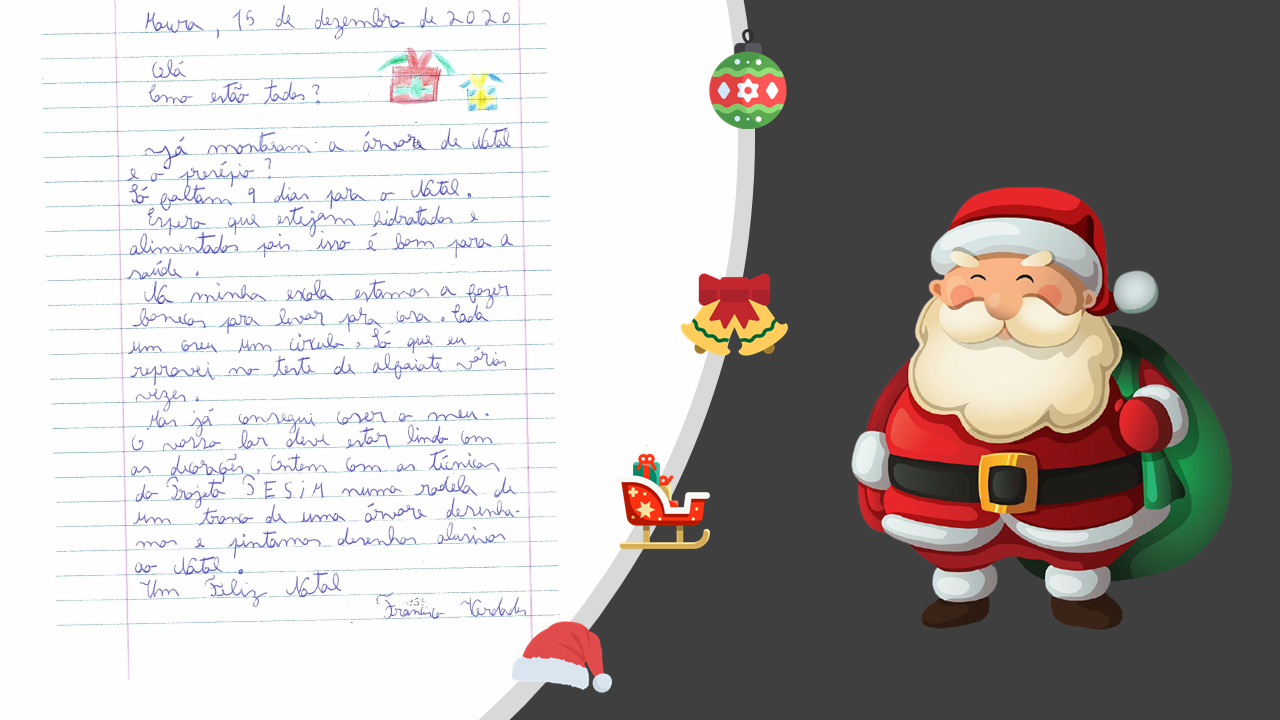 Moura, 15 de dezembro de 2020
Olá
Como estão todos?
Já montaram a árvore de Natal
e o presépio?
Só faltam 9 dias para o Natal.
Espero que estejam hidratados e
alimentados pois isso é bom para a
saúde.
Na minha escola estamos a fazer
bonecos para levar para casa. Cada
um coseu um círculo. Só que eu
reprovei no teste de alfaiate várias
vezes.
Mas já consegui coser o meu.
O vosso lar deve estar lindo com
as decorações. Ontem com as técnicas
do Projeto SESIM numa rodela de
um tronco de uma árvore desenha-
mos e pintamos desenhos alusivos
ao Natal.
Um Feliz Natal
Francisco Verdades